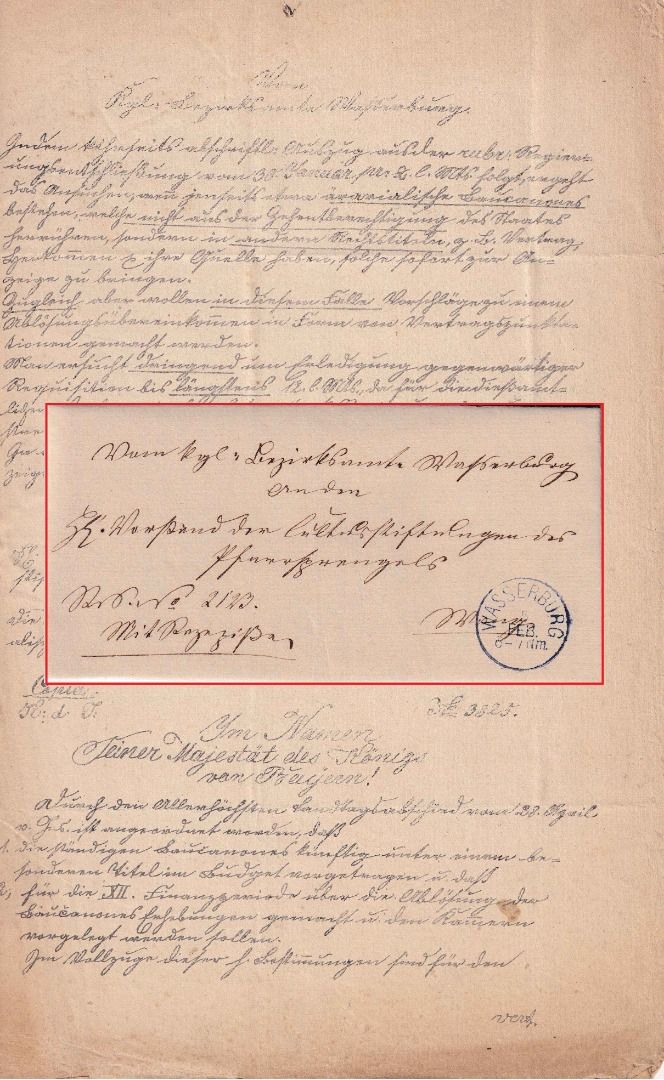 Vom
Kgl. Bezirksamte Wasserburg.
Indem diesseits abschriftl. Auszug aus der rubr. Regier=
ungsentschließung vom 30. Januar pr. 2. l. Mts. folgt, ergeht
das Ansuchen, wenn jenseits etwa ärarialische Baucanones
bestehen, welche nicht aus der Zehentberechtigung des Staates
herrühren, sondern in andern Rechtstiteln, z. B. Vertrag,
Herkommen ihre Quelle haben, solche sofort zur An=
zeige zu bringen.
Zugleich aber wollen in diesem Falle Vorschläge zu einem
Ablösungsübereinkommen in Form von Vertragspunkta=
tionen gemacht werden.
Man ersucht dringend um Erledigung gegenwärtiger
Requisition bis längstens 12. l. Mts., da für die diesamt=
Vom kgl. Bezirksamte Wasserburg
an den
H. Vorstand der Cultusstiftungen des
Pfarrsprengels
No 2123.
Mit Rezepiße
WASSERBURG
5
FEB.
6-7 Nm.
Copia.
K. d. I.
No 3825.
Im Namen
Seiner Majestät des Königs
von Bayern!
Durch den Allerhöchsten Landtagsabschied vom 28. April
v. Js. ist angeordnet worden, daß
1. die ständigen Baucanones künftig unter einem be=
sonderen Titel im Budget vorgetragen u. daß
2, für die XII. Finanzperiode über die Ablösung der
Baucanones Erhebungen gemacht u. den Kammern
vorgelegt werden sollen.
Im Vollzuge dieser h. Bestimmungen sind für den
vert.